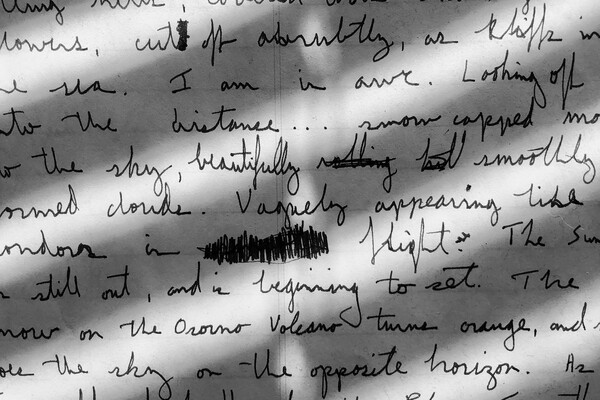 flowers, cut off abrubtly, as kliffs in
the sea. I am in awe. Looking off
into the distanse... snow capped mo
to the sky, beautifully rolling smoothly
formed clouds. Vaguely appearing like
condors in flight. The Sun
is still out, and is beginning to set. The
snow on the Osorno Volcano turns orange, and s
does the sky on the opposite horizon. As